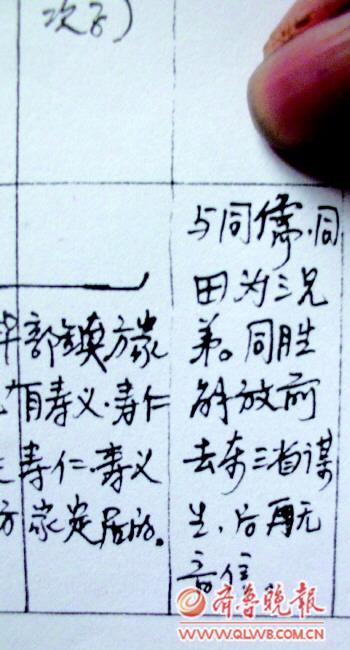 次子）
与同儒、同
田为三兄
弟。同胜
解放前
去东三省谋
生，后再无
音信
部镇方家
有寿义·寿仁
寿仁·寿义
方家定居的。
齐鲁晚报
WWW.QLWB.COM.CN